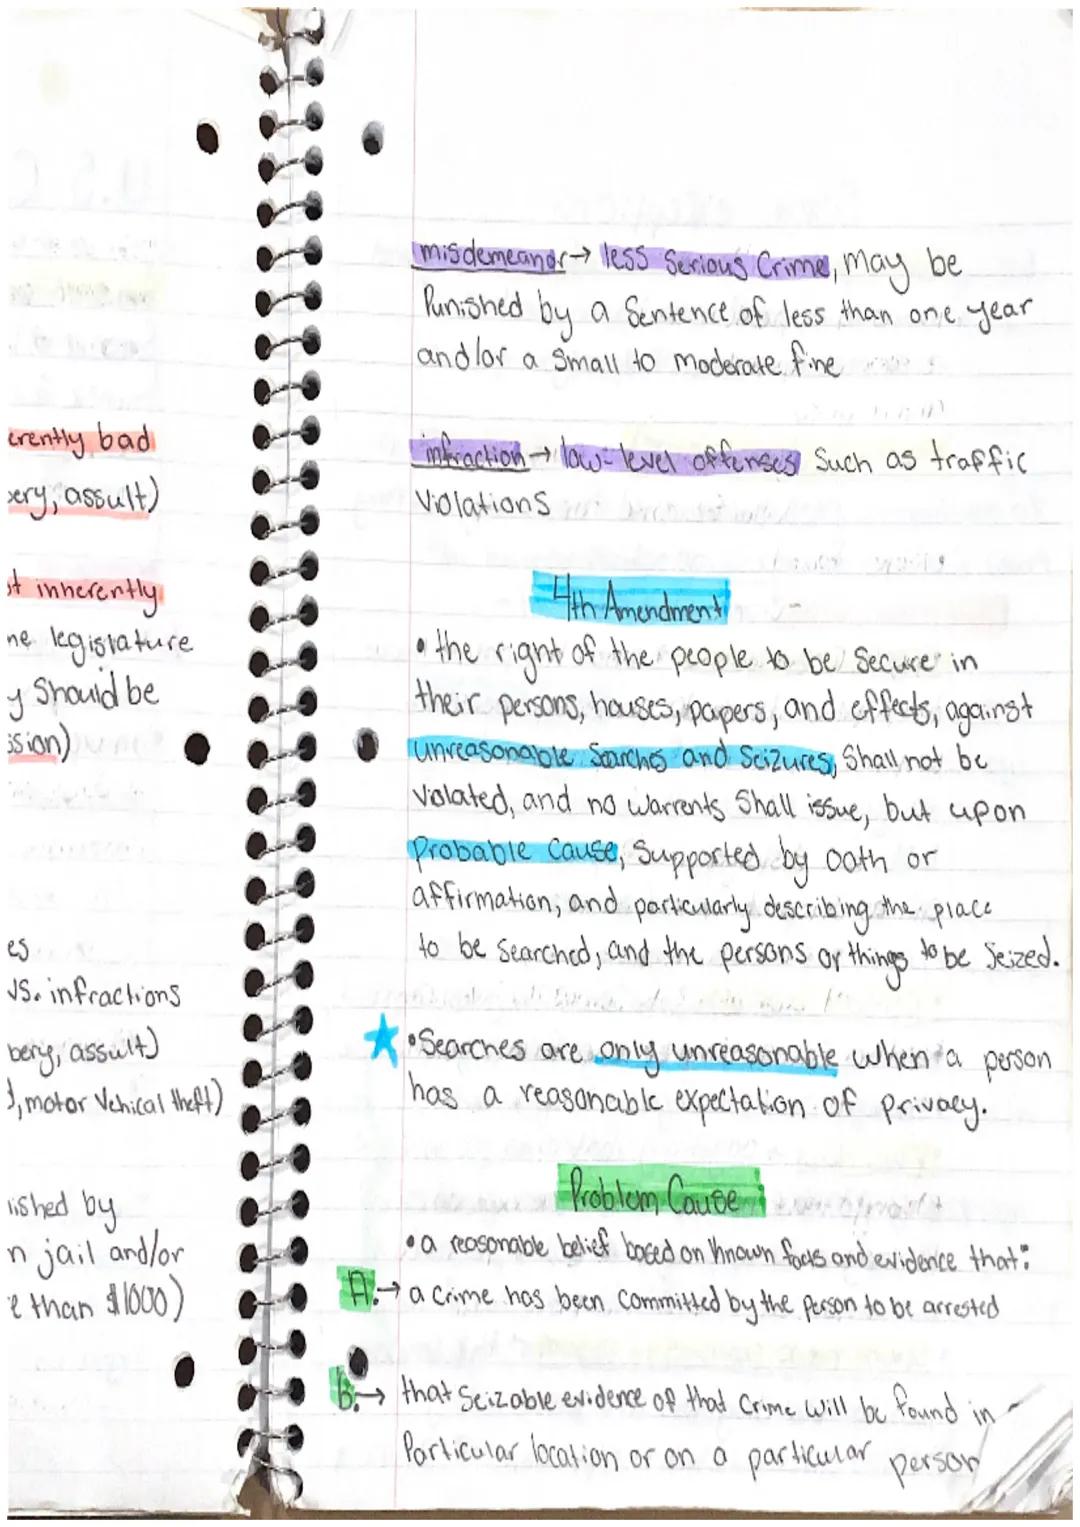 erently bad
bery, assult)
ot inherently
he legislature
y Should be
ssion)
es
vs. infractions
bery, assult)
d, motor Vehical theft)
nished by
n jail and/or
e than $1000)
misdemeanor → less Serious Crime, may be
Punished by a Sentence of less than one year
and/or a small to moderate fine
infraction → low-level offenses Such as traffic
Violations
4th Amendment
• the right of the people to be Secure in
their persons, houses, papers, and effects, against
unreasonable Searches and Seizures, Shall not be
violated, and no warrents Shall issue, but upon
Probable Cause, Supported by oath or
affirmation, and particularly describing the place
to be Searched, and the persons or things to be Seized.
• Searches are only unreasonable when a person
has a reasonable expectation of privacy.
Problem Cause
• a reasonable belief based on known facts and evidence that:
A. → a crime has been committed by the person to be arrested
B. → that Seizable evidence of that Crime will be found in
Particular location or on a particular person